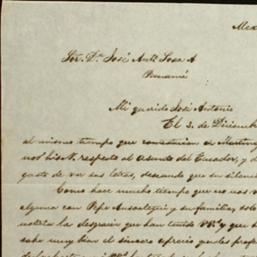 Mex
Sor. Dn. José Antº Sosa A
Panamá
Mi querido José Antonio
El 3. de Diciemb
al mismo tiempo que contestacion a Martin
respecto al asunto del Ecuador, y d
gusto de ver sus letras, deseando que su silenci
Como hace mucho tiempo que no nos v
alguna con Pepe Ansoategui y su familia, solo
noticia la desgracia que han tenido VV. y que h
sabe muy bien el sincero aprecio que les prof